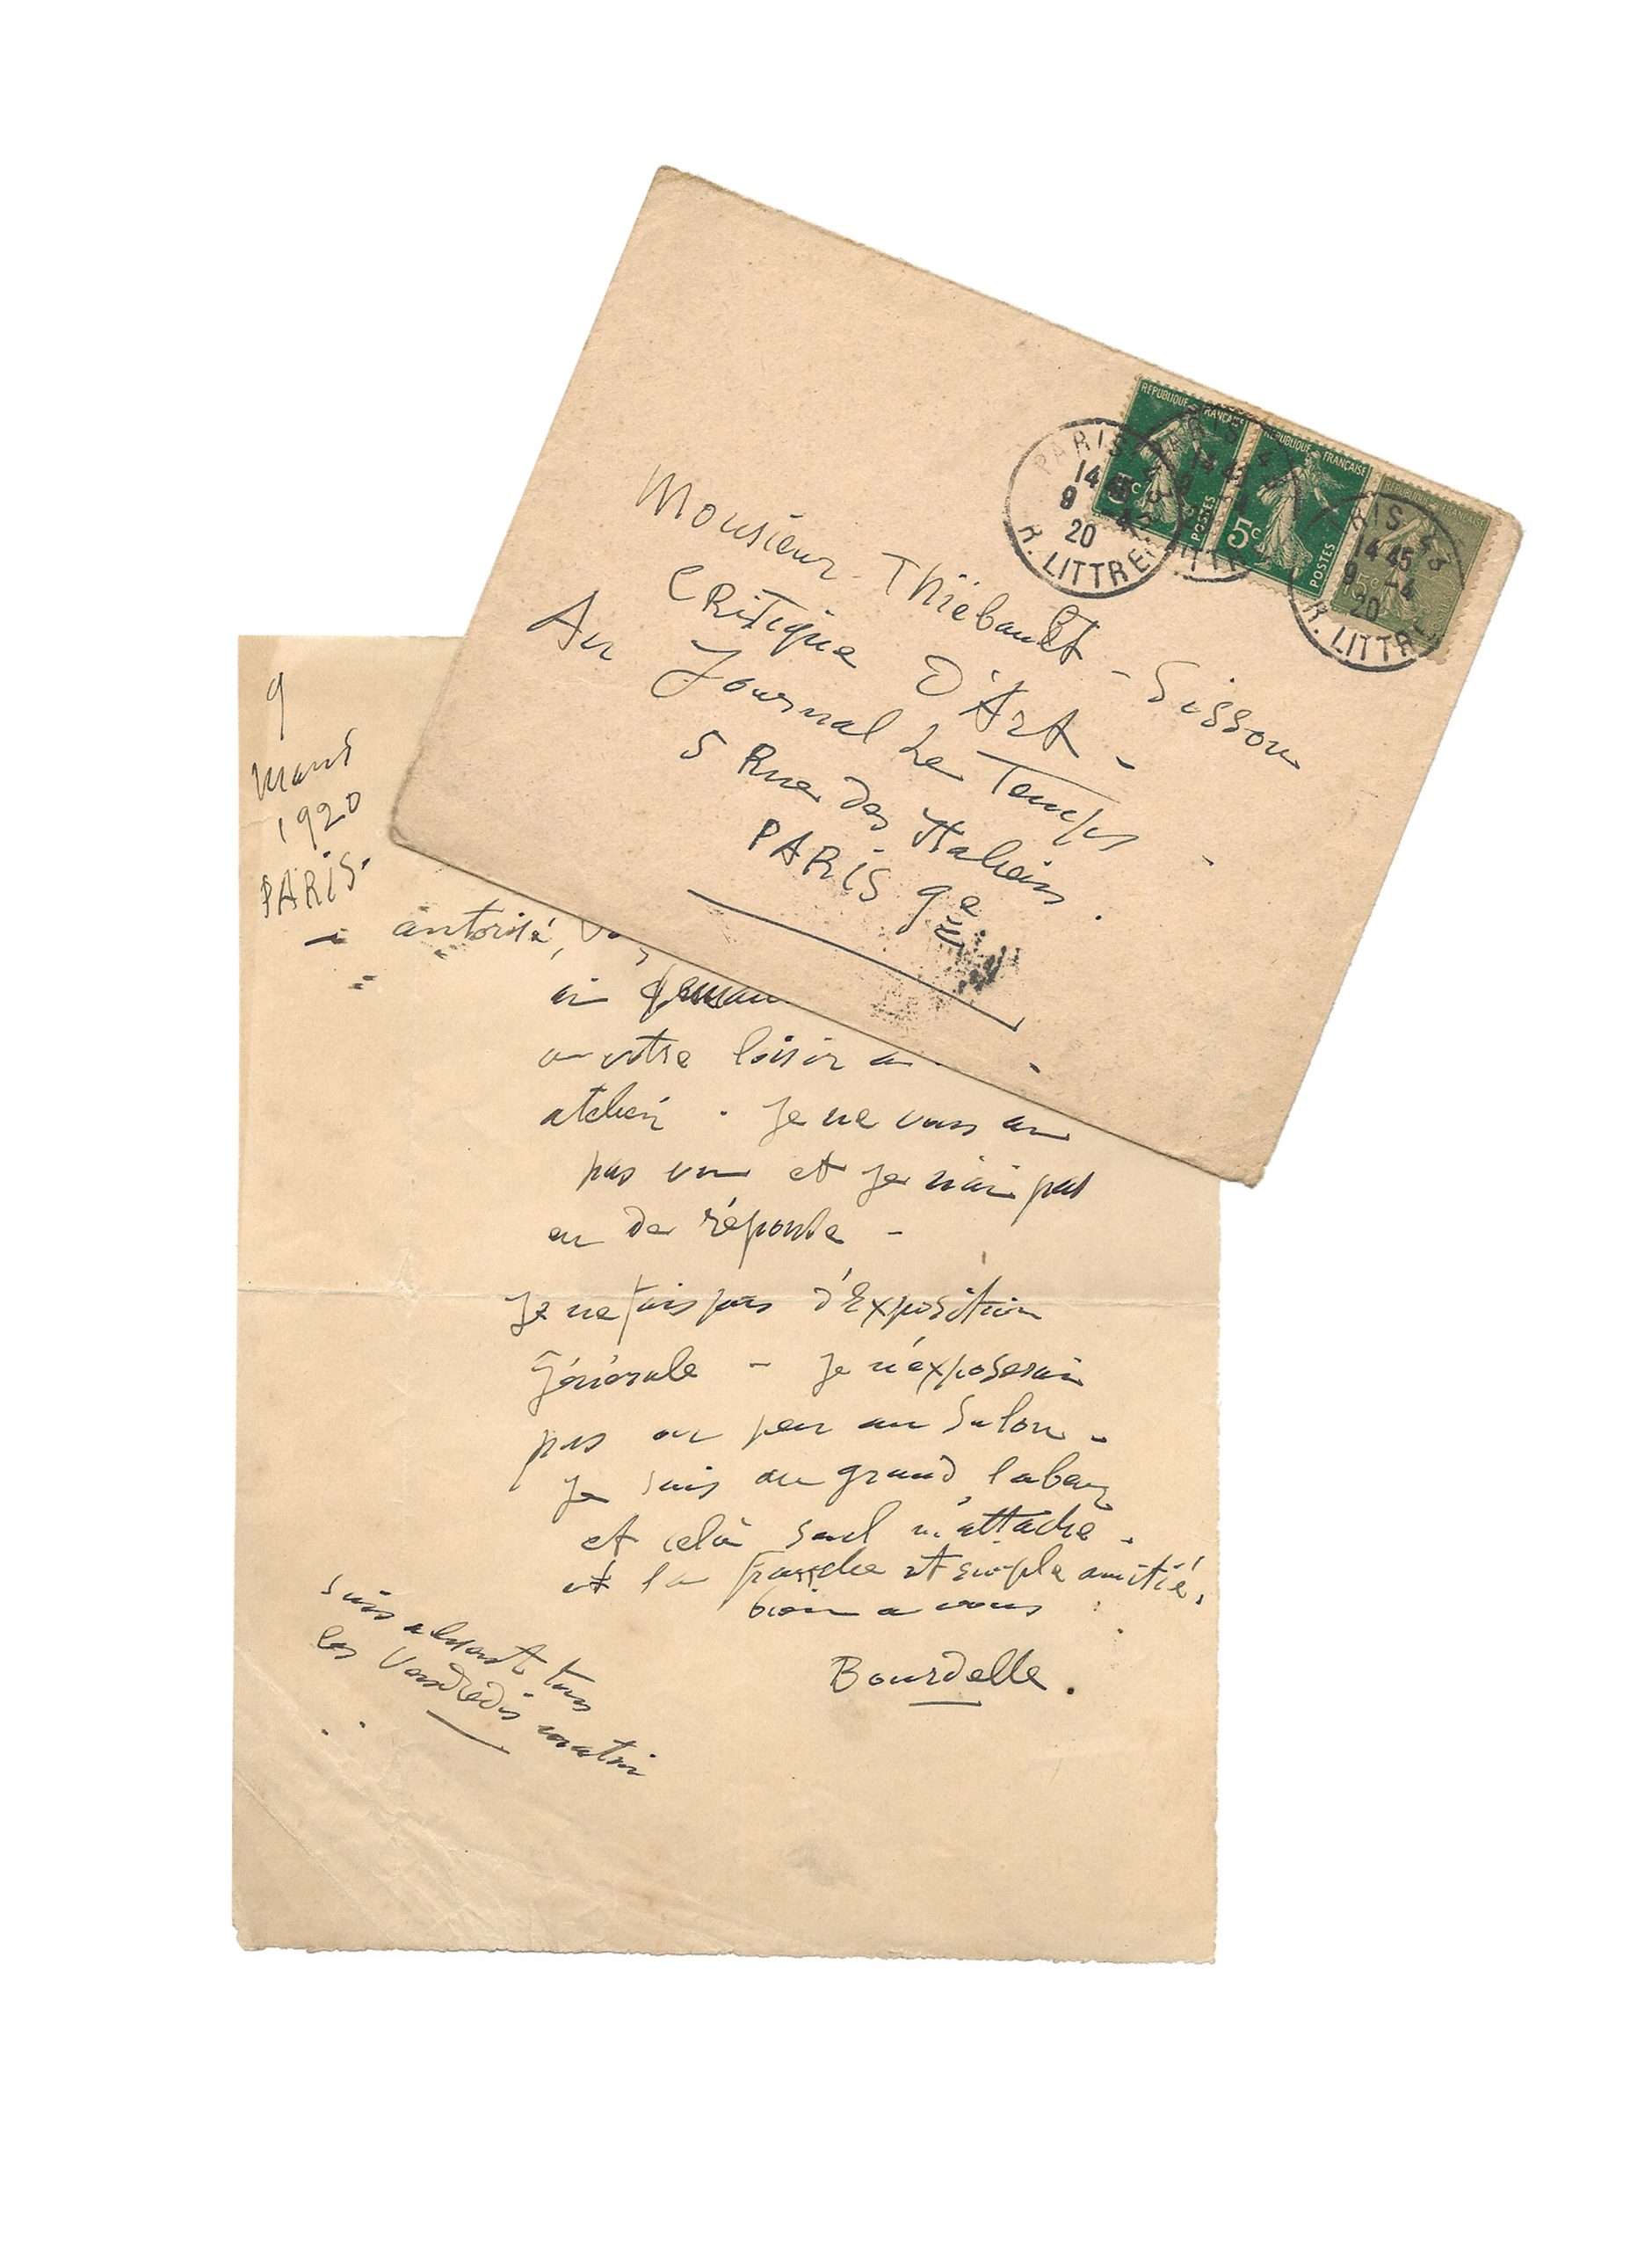 Monsieur Thiébault-Sisson
Critique D'Art -
Au Journal Le Temps -
5 Rue des Italiens.
PARIS 9e
REPUBLIQUE FRANÇAISE
5c
POSTES
REPUBLIQUE FRANÇAISE
5c
POSTES
PARIS
14 45
9 -4
20
R. LITTRE
14 45
9 -4
20
R. LITTRE
9
mars
1920
PARIS.
autorisé,
votre loisir
atelier. Je ne vous ai
pas vu et je n'ai pas
eu de réponse -
Je ne fais pas d'Exposition
Générale - je n'exposerai
pas ou peu au Salon -
Je suis au grand labeur
et celà seul m'attache.
et la franche et simple amitié.
bien a vous
Bourdelle.
suis absent tous
les Vendredis matin